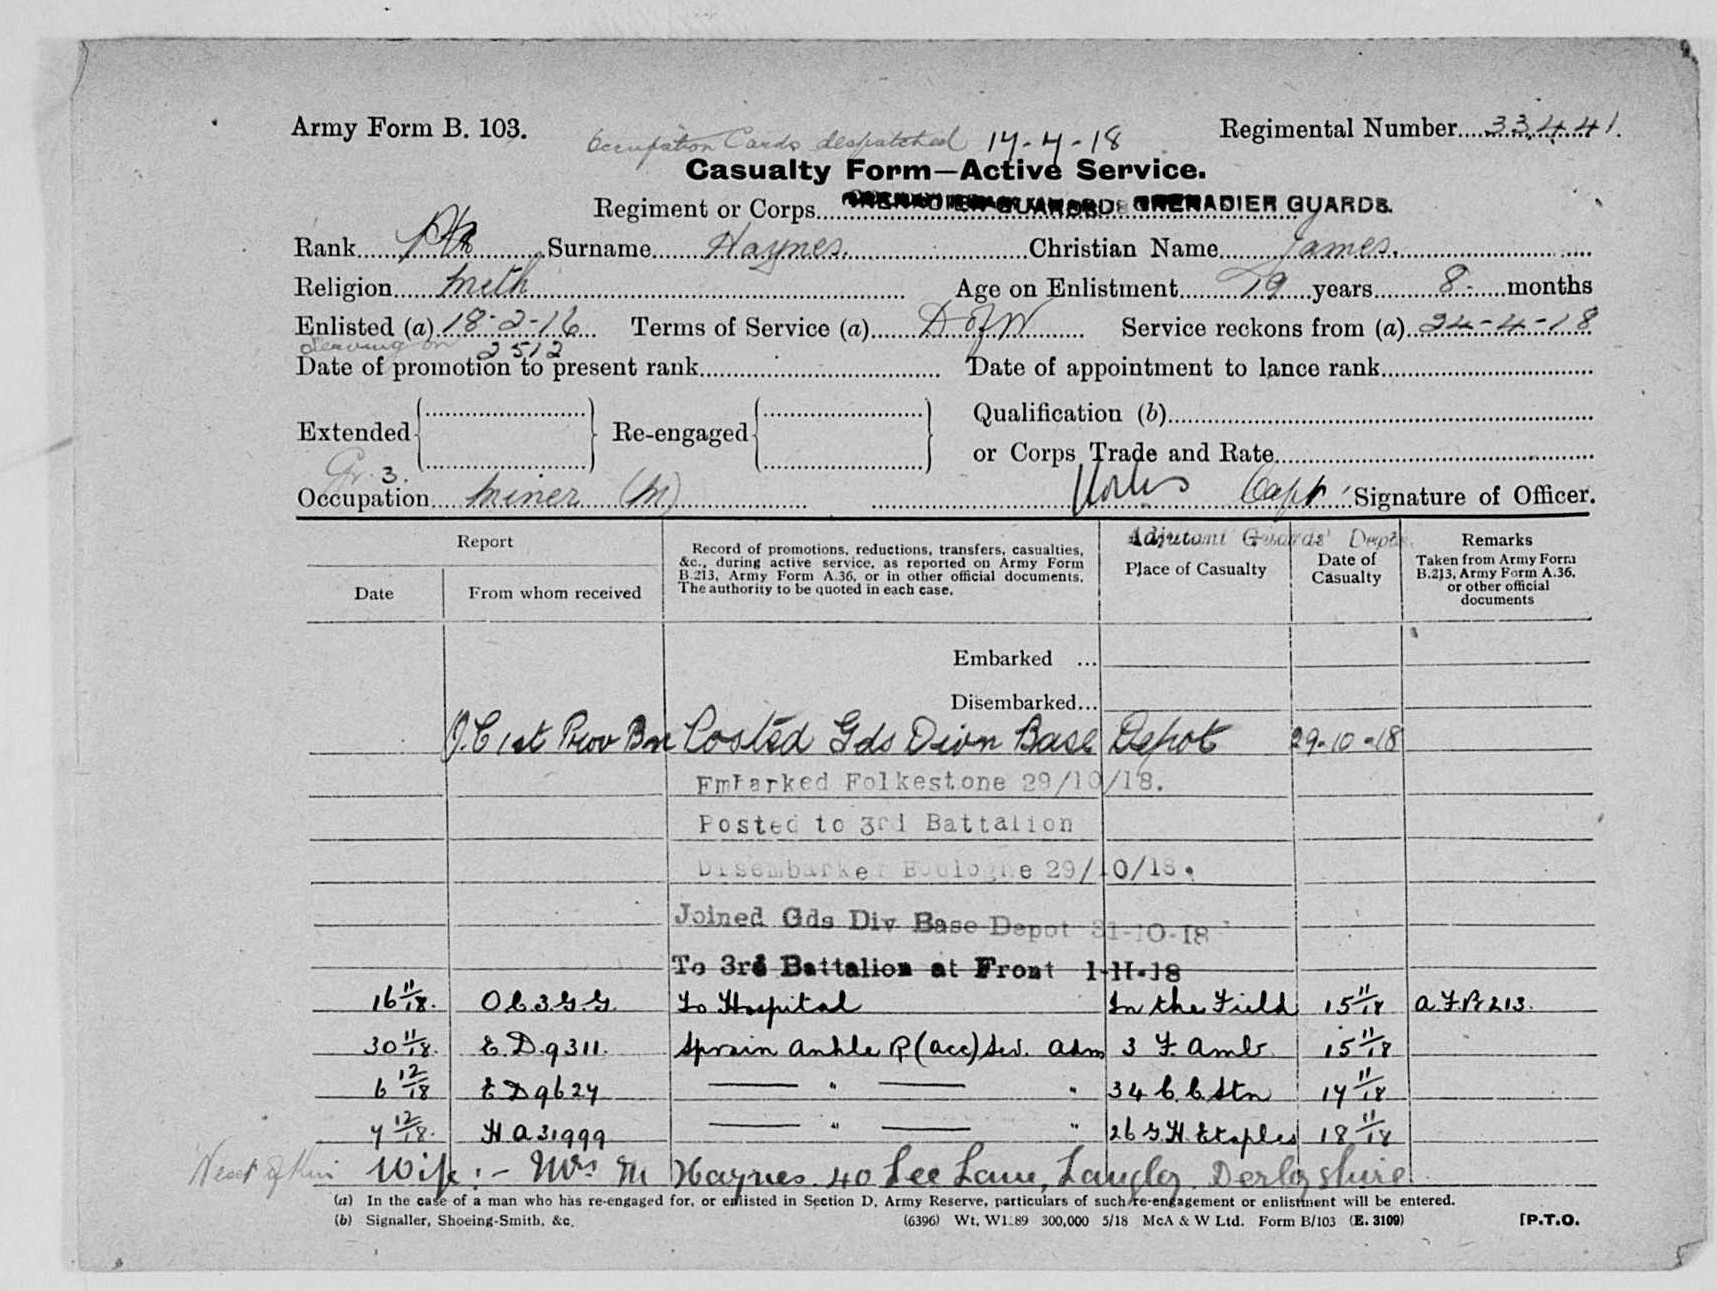 Army Form B. 103.
Occupation Cards despatched 14-4-18
Regimental Number 33441.
Casualty Form—Active Service.
Regiment or Corps GRENADIER GUARDS.
Rank Surname Haynes. Christian Name James.
Religion Meth Age on Enlistment 19 years 8. months
Enlisted (a) 18-2-16 Terms of Service (a) D of W Service reckons from (a) 24-4-18
Serving on 2512
Date of promotion to present rank Date of appointment to lance rank
Extended Re-engaged Qualification (b)
or Corps Trade and Rate
Gr. 3.
Occupation Miner (M) Capt Signature of Officer.
Adjutant Guards' Depot.
Report Record of promotions, reductions, transfers, casualties, &c., during active service, as reported on Army Form B.213, Army Form A.36, or in other official documents. The authority to be quoted in each case. Place of Casualty Date of Casualty Remarks Taken from Army Form B.213, Army Form A.36, or other official documents
Date From whom received
Embarked ...
Disembarked...
O.C 1st Prov Bn Posted Gds Divn Base Depot 29-10-18
Embarked Folkestone 29/10/18.
Posted to 3rd Battalion
Disembarked Boulogne 29/10/18.
Joined Gds Div Base Depot 31-10-18
To 3rd Battalion at Front 1-11-18
16 11/18. O C 3. G. G. To Hospital In the Field 15 11/18 A.F.B 213.
30 11/18. E. D. 9311. Sprain Ankle R (acc) Sev. Adm 3 F. Amb 15 11/18
6 12/18 E D 9624 — " — " 34 C. C. Stn 14 11/18
4 12/18. H A 31999 — " — " 26 G. H. Etaples 18 11/18
Next of Kin Wife:- Mrs M Haynes. 40 Lee Lane, Langley. Derbyshire
(a) In the case of a man who has re-engaged for, or enlisted in Section D, Army Reserve, particulars of such re-engagement or enlistment will be entered.
(b) Signaller, Shoeing-Smith, &c. (6396) Wt. W1:89 300,000 5/18 McA & W Ltd. Form B/103 (E. 3109) [P.T.O.